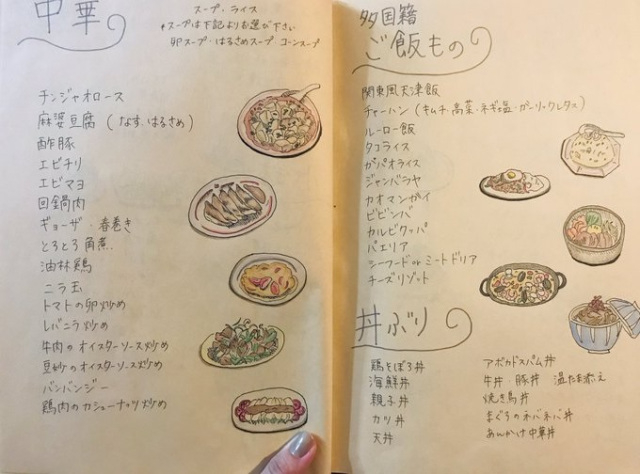 中華
スープ・ライス
*スープは下記よりお選び下さい
卵スープ・はるさめスープ コーンスープ
チンジャオロース
麻婆豆腐 (なす・はるさめ)
酢豚
エビチリ
エビマヨ
回鍋肉
ギョーザ・春巻き
とろとろ角煮
油林鶏
ニラ玉
トマトの卵炒め
レバニラ炒め
牛肉のオイスターソース炒め
豆苗のオイスターソース炒め
バンバンジー
鶏肉のカシューナッツ炒め
多国籍
ご飯もの
関東風天津飯
チャーハン (キムチ・高菜・ネギ塩・ガーリックレタス)
ルーロー飯
タコライス
ガパオライス
ジャンバラヤ
カオマンガイ
ビビンバ
カルビクッパ
パエリア
シーフードorミートドリア
チーズリゾット
丼ぶり
鶏そぼろ丼
海鮮丼
親子丼
カツ丼
天丼
アボカドスパム丼
牛丼・豚丼 温たま添え
焼き鳥丼
まぐろのネバネバ丼
あんかけ中華丼